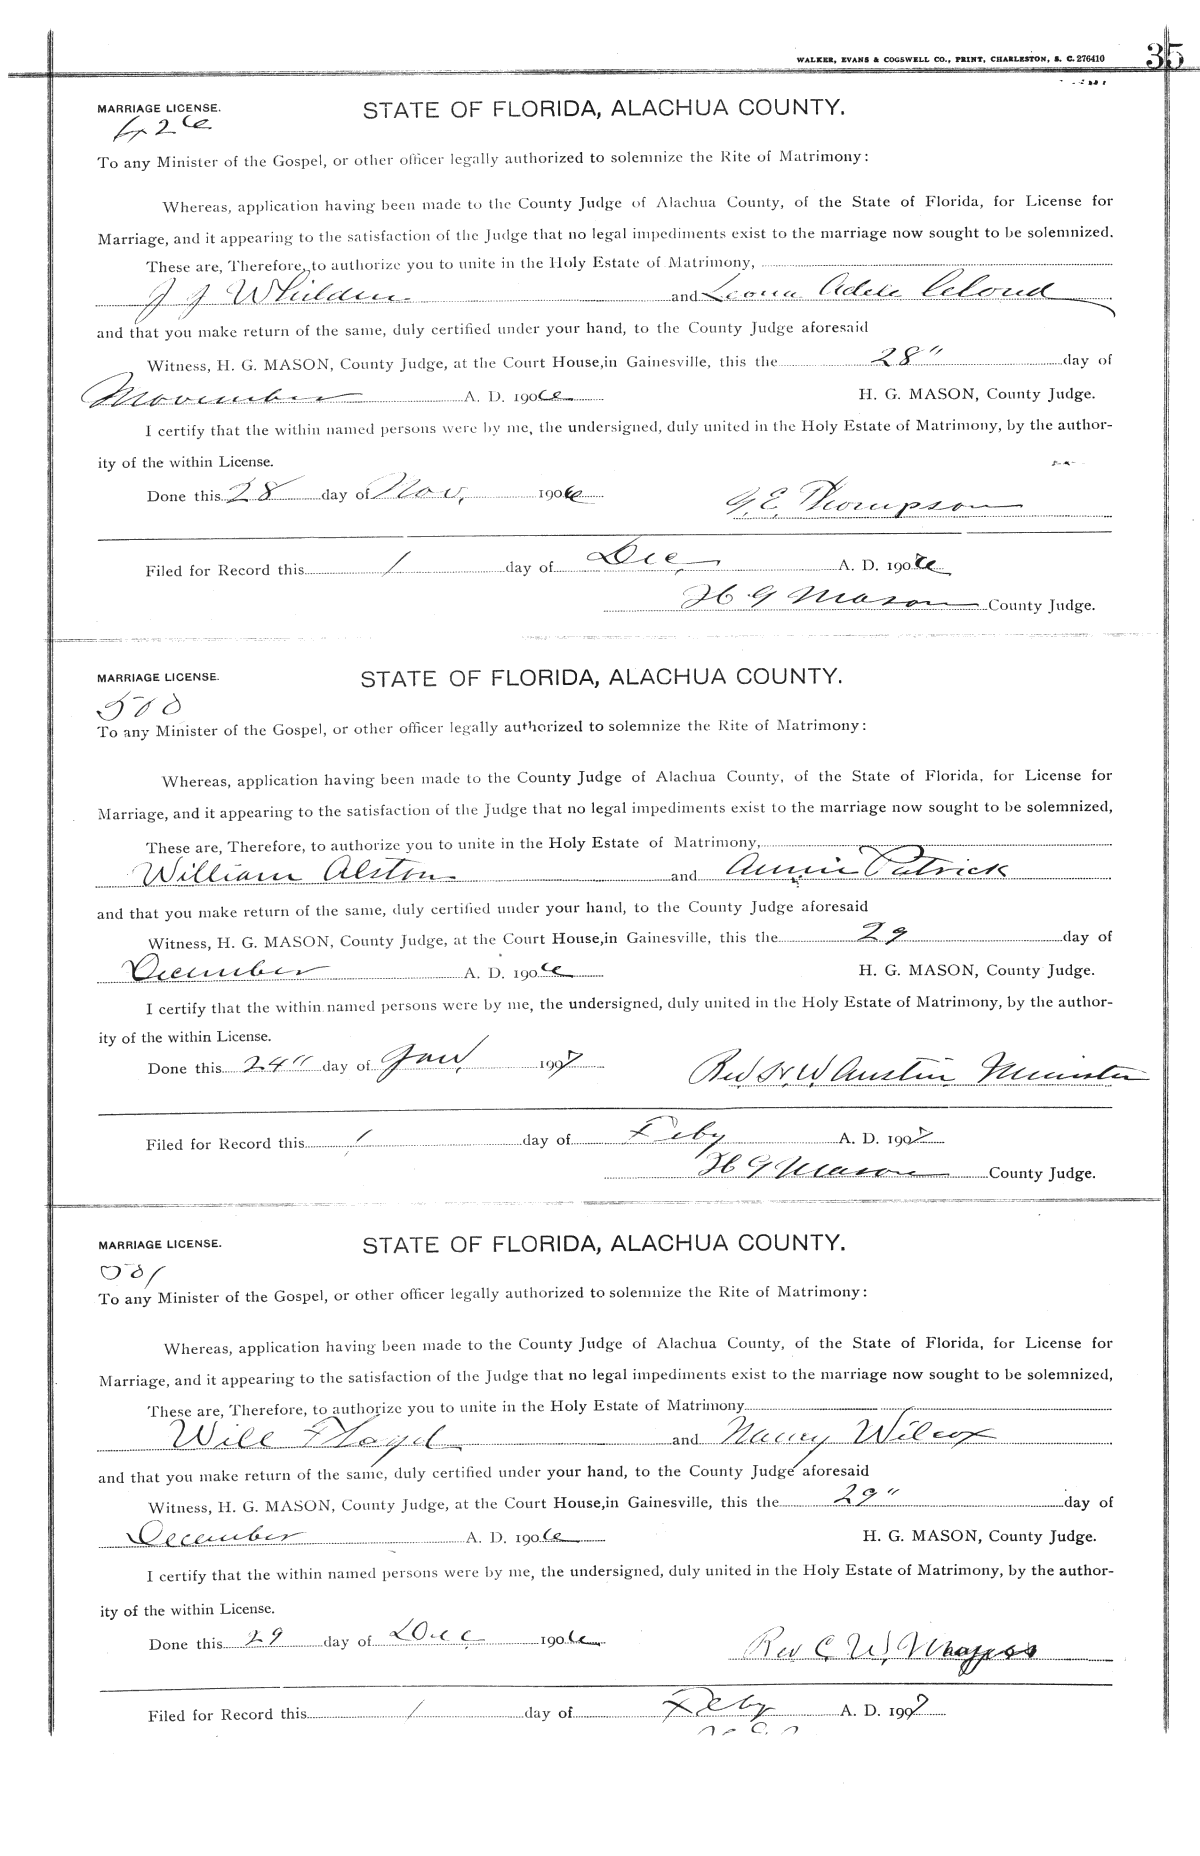 WALKER, EVANS & COGSWELL CO., PRINT, CHARLESTON, S. C. 276410
35
MARRIAGE LICENSE. STATE OF FLORIDA, ALACHUA COUNTY.
426
To any Minister of the Gospel, or other officer legally authorized to solemnize the Rite of Matrimony:
Whereas, application having been made to the County Judge of Alachua County, of the State of Florida, for License for
Marriage, and it appearing to the satisfaction of the Judge that no legal impediments exist to the marriage now sought to be solemnized.
These are, Therefore, to authorize you to unite in the Holy Estate of Matrimony,
J J Whilden and Leona Adele Cloud
and that you make return of the same, duly certified under your hand, to the County Judge aforesaid
Witness, H. G. MASON, County Judge, at the Court House, in Gainesville, this the 28" day of
November A. D. 1906 H. G. MASON, County Judge.
I certify that the within named persons were by me, the undersigned, duly united in the Holy Estate of Matrimony, by the author-
ity of the within License.
Done this 28 day of Nov. 1906 G. E. Thompson
Filed for Record this 1 day of Dec, A. D. 1906
H G Mason County Judge.
MARRIAGE LICENSE. STATE OF FLORIDA, ALACHUA COUNTY.
500
To any Minister of the Gospel, or other officer legally authorized to solemnize the Rite of Matrimony:
Whereas, application having been made to the County Judge of Alachua County, of the State of Florida, for License for
Marriage, and it appearing to the satisfaction of the Judge that no legal impediments exist to the marriage now sought to be solemnized,
These are, Therefore, to authorize you to unite in the Holy Estate of Matrimony,
William Alston and Annie Patrick
and that you make return of the same, duly certified under your hand, to the County Judge aforesaid
Witness, H. G. MASON, County Judge, at the Court House, in Gainesville, this the 29 day of
December A. D. 1906 H. G. MASON, County Judge.
I certify that the within named persons were by me, the undersigned, duly united in the Holy Estate of Matrimony, by the author-
ity of the within License.
Done this 24" day of Jan, 1907 Rev. H. W. Austin Minister
Filed for Record this 1 day of Feby A. D. 1907
H G Mason County Judge.
MARRIAGE LICENSE. STATE OF FLORIDA, ALACHUA COUNTY.
To any Minister of the Gospel, or other officer legally authorized to solemnize the Rite of Matrimony:
Whereas, application having been made to the County Judge of Alachua County, of the State of Florida, for License for
Marriage, and it appearing to the satisfaction of the Judge that no legal impediments exist to the marriage now sought to be solemnized,
These are, Therefore, to authorize you to unite in the Holy Estate of Matrimony
Will Floyd and Nancy Wilcox
and that you make return of the same, duly certified under your hand, to the County Judge aforesaid
Witness, H. G. MASON, County Judge, at the Court House, in Gainesville, this the 29" day of
December A. D. 1906 H. G. MASON, County Judge.
I certify that the within named persons were by me, the undersigned, duly united in the Holy Estate of Matrimony, by the author-
ity of the within License.
Done this 29 day of Dec 1906 Rev C. W.
Filed for Record this 1 day of Feby A. D. 1907